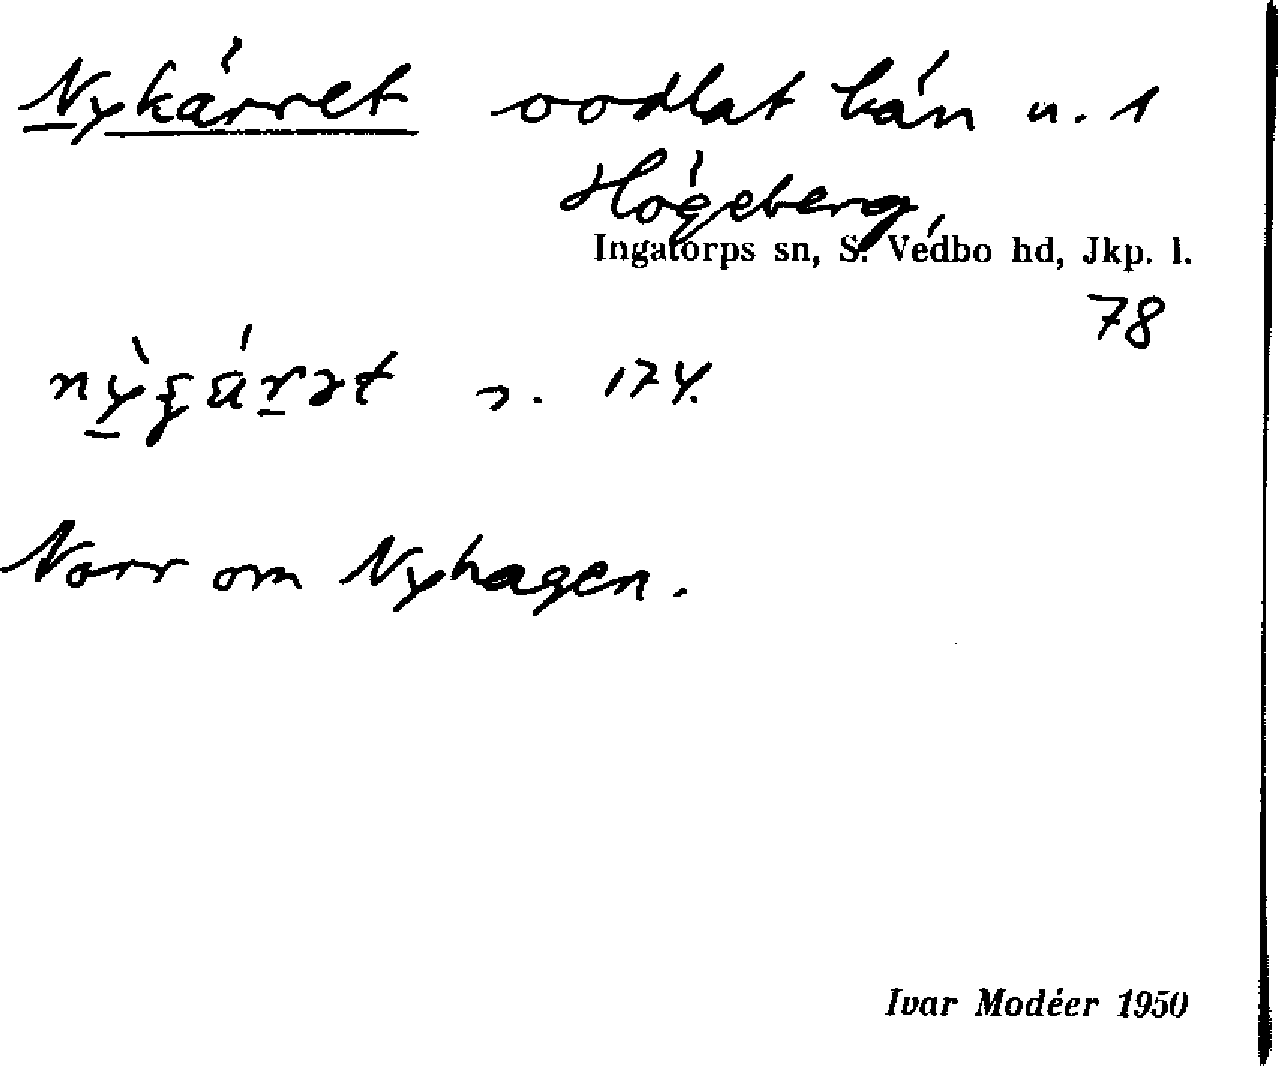 Nykärret oodlat kän u. 1
Högeberg
Ingatorps sn, S. Vedbo hd, Jkp. l.
78
174.
Norr om Nyhagen.
Ivar Modéer 1950